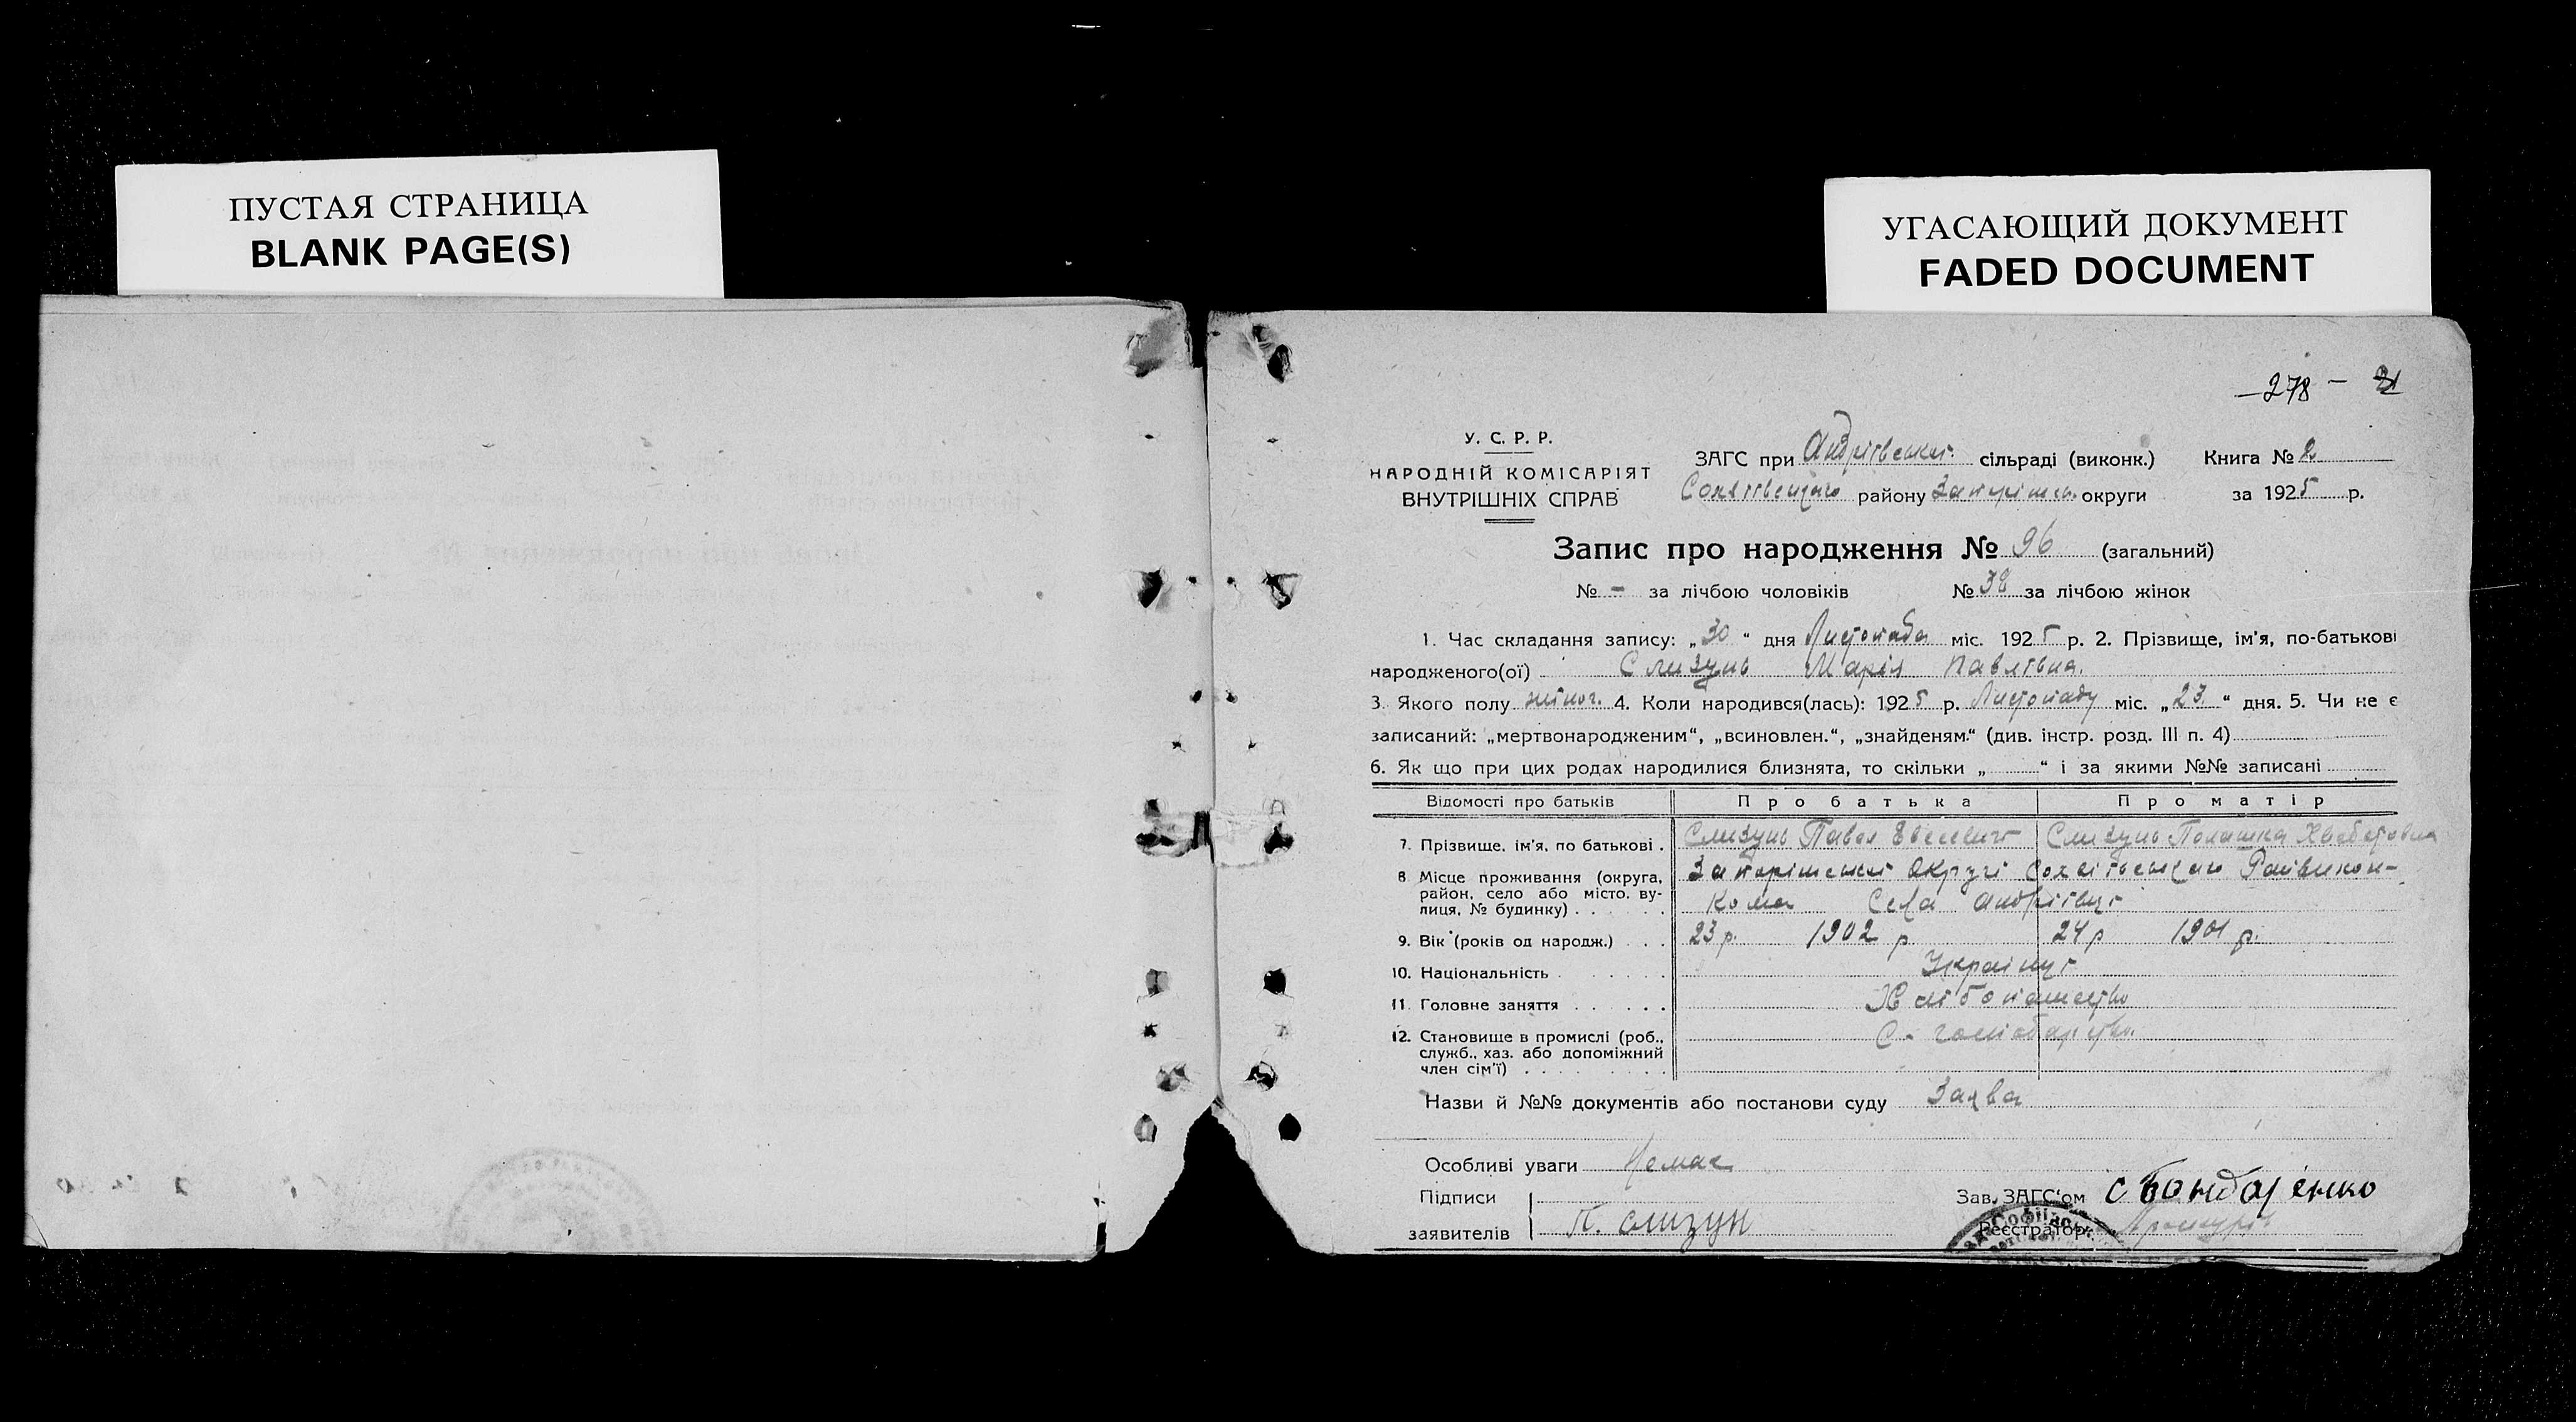 ПУСТАЯ СТРАНИЦА
BLANK PAGE(S)
УГАСАЮЩИЙ ДОКУМЕНТ
FADED DOCUMENT
— 278 —
У. С. Р. Р.
НАРОДНІЙ КОМІСАРІЯТ
ВНУТРІШНІХ СПРАВ
ЗАГС при Андріївськ. сільраді (виконк.) Книга № 2
району Запоріжсь. округи за 1925 р.
Запис про народження № 96 (загальний)
№ - за лічбою чоловіків № 38 за лічбою жінок
1. Час складання запису: „30“ дня Листопада міс. 1925 р. 2. Прізвище, ім'я, по-батькові
народженого(ої) Слизунь Марія Павлівна.
3. Якого полу жіноч. 4. Коли народився(лась): 1925 р. Листопаду міс. „23“ дня. 5. Чи не є
записаний: „мертвонародженим“, „всиновлен.“, „знайденям.“ (див. інстр. розд. III п. 4)
6. Як що при цих родах народилися близнята, то скільки „ “ і за якими №№ записані
Відомості про батьків Про батька Про матір
7. Прізвище, ім'я, по батькові . Слизунь Павел Слизунь Полашка
8. Місце проживання (округа, район, село або місто, вулиця, № будинку) . . . . . Запоріжської Округі Райвикон-
кома Села Андріївці
9. Вік (років од народж.) . . . 23 р. 1902 р 24 р 1901 р.
10. Національність . . . . . . Українці
11. Головне заняття . . . . . . Хліборобство
12. Становище в промислі (роб.,
служб., хаз. або допоміжний
член сім'ї) . . . . . . . . С-господарство
Назви й №№ документів або постанови суду Заява
Особливі уваги Немає
Підписи
заявителів П. Слизун
Зав. ЗАГС'ом С Бондаренко
Реєстратор